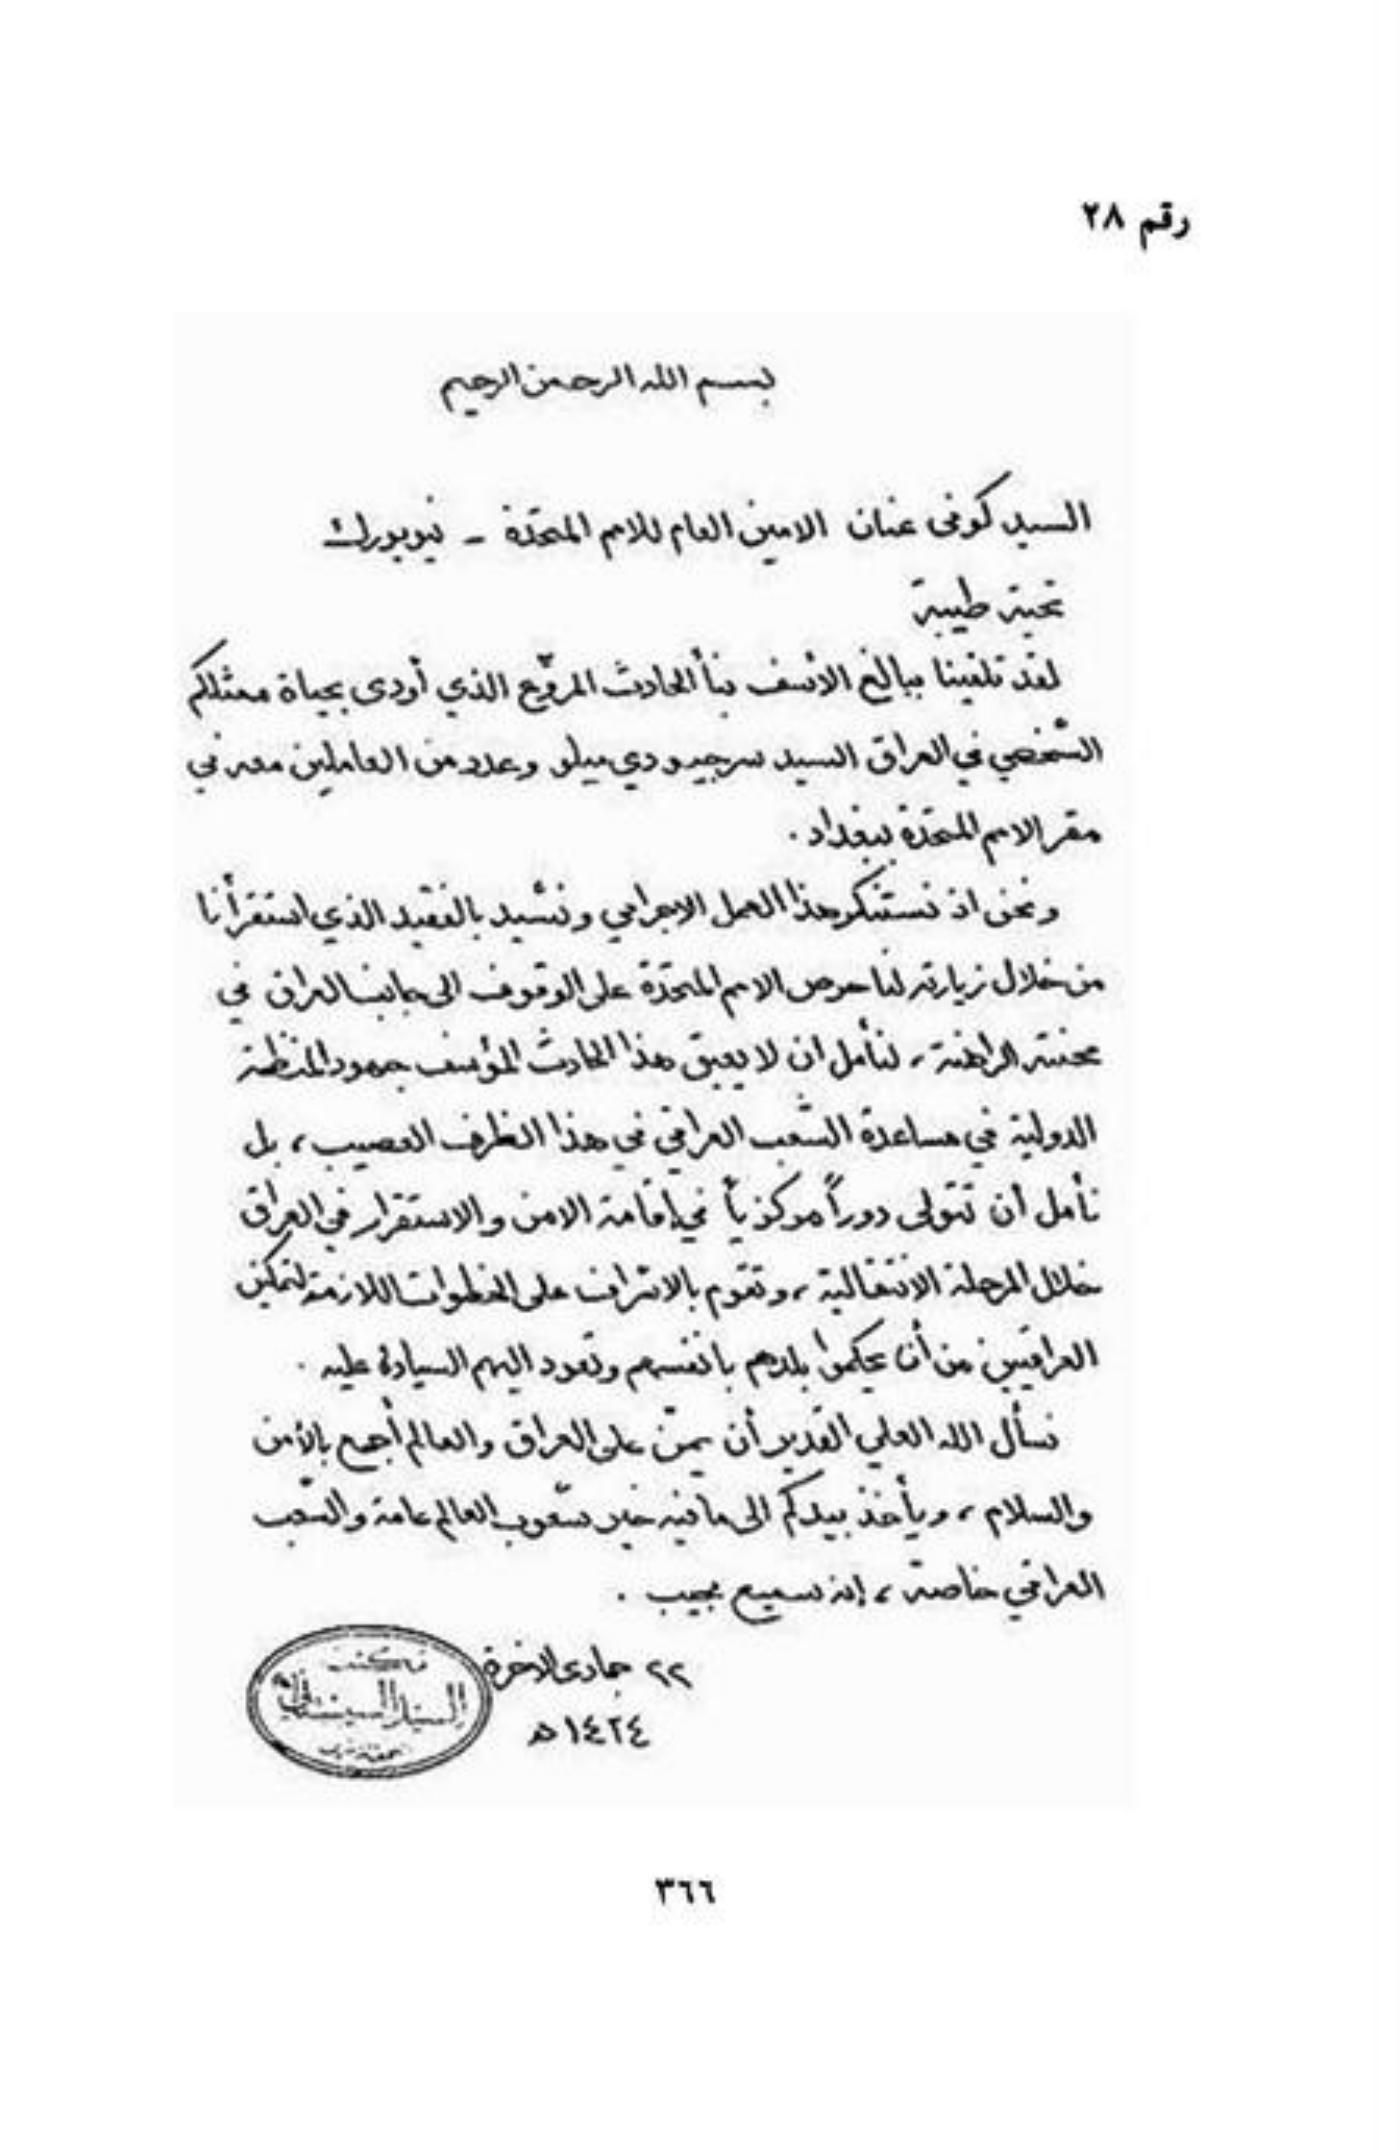 رقم ٢٨
بسم الله الرحمن الرحيم
السيد كوفي عنان الامين العام للامم المتحدة - نيويورك
تحية طيبة
لقد تلقينا ببالغ الأسف نبأ الحادث المروّع الذي أودى بحياة ممثلكم
الشخصي في العراق السيد سرجيو دي ميلو وعدد من العاملين معه في
مقر الامم المتحدة ببغداد .
ونحن اذ نستنكر هذا العمل الاجرامي ونشيد بالفقيد الذي استقرأنا
من خلال زيارته لنا حرص الامم المتحدة على الوقوف الى جانب العراق في
محنته الراهنة ، لنأمل ان لا يعيق هذا الحادث المؤسف جهود المنظمة
الدولية في مساعدة الشعب العراقي في هذا الظرف العصيب ، بل
نأمل أن تتولى دوراً مركزياً في إقامة الامن والاستقرار في العراق
خلال المرحلة الانتقالية ، وتقوم بالاشراف على الخطوات اللازمة لتمكين
العراقيين من أن يحكموا بلدهم بانفسهم وتعود اليهم السيادة عليه .
نسأل الله العلي القدير أن يمنّ على العراق والعالم أجمع بالأمن
والسلام ، ويأخذ بيدكم الى ما فيه خير شعوب العالم عامة والشعب
العراقي خاصة ، إنه سميع مجيب .
٢٢ جمادى الاخرة
١٤٢٤ هـ
مكتب
السيد السيستاني
٣٦٦